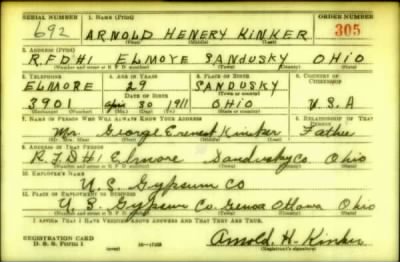 SERIAL NUMBER 1. NAME (Print) ORDER NUMBER
692 ARNOLD HENERY KINKER 305
(First) (Middle) (Last)
2. ADDRESS (Print)
R.F.D #1 ELMOYE SANDUSKY OHIO
(Number and street or R. F. D. number) (Town) (County) (State)
3. TELEPHONE 4. AGE IN YEARS 5. PLACE OF BIRTH 6. COUNTRY OF CITIZENSHIP
ELMORE 29 SANDUSKY
(Town or county)
3901 Apr 30 1911 OHIO U.S.A
(Exchange) (Number) (Mo.) (Day) (Yr.) (State or country)
7. NAME OF PERSON WHO WILL ALWAYS KNOW YOUR ADDRESS 8. RELATIONSHIP OF THAT PERSON
Mr. George Ernest Kinker Father
(Mr., Mrs., Miss) (First) (Middle) (Last)
9. ADDRESS OF THAT PERSON
R.F.D #1 Elmore Sandusky Co Ohio
(Number and street or R. F. D. number) (Town) (County) (State)
10. EMPLOYER'S NAME
U. S. Gypsum Co
11. PLACE OF EMPLOYMENT OR BUSINESS
U. S. Gypsum Co. Genoa Ottawa Ohio
(Number and street or R. F. D. number) (Town) (County) (State)
I AFFIRM THAT I HAVE VERIFIED ABOVE ANSWERS AND THAT THEY ARE TRUE.
REGISTRATION CARD
D. S. S. Form 1 (over) 16-17105 Arnold. H. Kinker
(Registrant's signature)